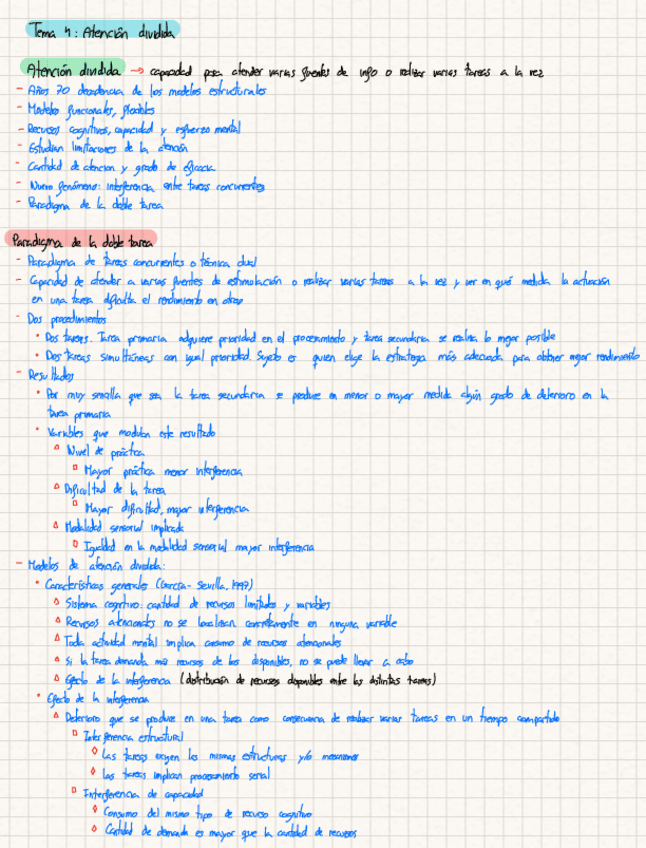 Tema 4: Atención dividida
Atención dividida → capacidad para atender varias fuentes de info o realizar varias tareas a la vez
- Años 70 decadencia de los modelos estructurales
- Modelos funcionales, flexibles
- Recursos cognitivos, capacidad y esfuerzo mental
- Estudian limitaciones de la atención
- Cantidad de atención y grado de eficacia
- Nuevo fenómeno: interferencia entre tareas concurrentes
- Paradigma de la doble tarea
Paradigma de la doble tarea
- Paradigma de tareas concurrentes o técnica dual
- Capacidad de atender a varias fuentes de estimulación o realizar varias tareas a la vez y ver en qué medida la actuación
en una tarea dificulta el rendimiento en otras
- Dos procedimientos
• Dos tareas. Tarea primaria adquiere prioridad en el procesamiento y tarea secundaria se realiza lo mejor posible
• Dos tareas simultáneas con igual prioridad. Sujeto es quien elige la estrategia más adecuada para obtener mejor rendimiento
- Resultados
• Por muy sencilla que sea la tarea secundaria se produce en menor o mayor medida algún grado de deterioro en la
tarea primaria
• Variables que modulan este resultado
Nivel de práctica
Mayor práctica menor interferencia
Dificultad de la tarea
Mayor dificultad, mayor interferencia
Modalidad sensorial implicada
Igualdad en la modalidad sensorial mayor interferencia
- Modelos de atención dividida:
• Características generales (García-Sevilla, 1997)
Sistema cognitivo: cantidad de recursos limitados y variables
Recursos atencionales no se localizan concretamente en ninguna variable
Toda actividad mental implica consumo de recursos atencionales
Si la tarea demanda más recursos de los disponibles, no se puede llevar a cabo
Efecto de la interferencia (distribución de recursos disponibles entre las distintas tareas)
• Efecto de la interferencia
Deterioro que se produce en una tarea como consecuencia de realizar varias tareas en un tiempo compartido
Interferencia estructural
Las tareas exigen las mismas estructuras y/o mecanismos
Las tareas implican procesamiento serial
Interferencia de capacidad
Consumo del mismo tipo de recurso cognitivo
Cantidad de demanda es mayor que la cantidad de recursos